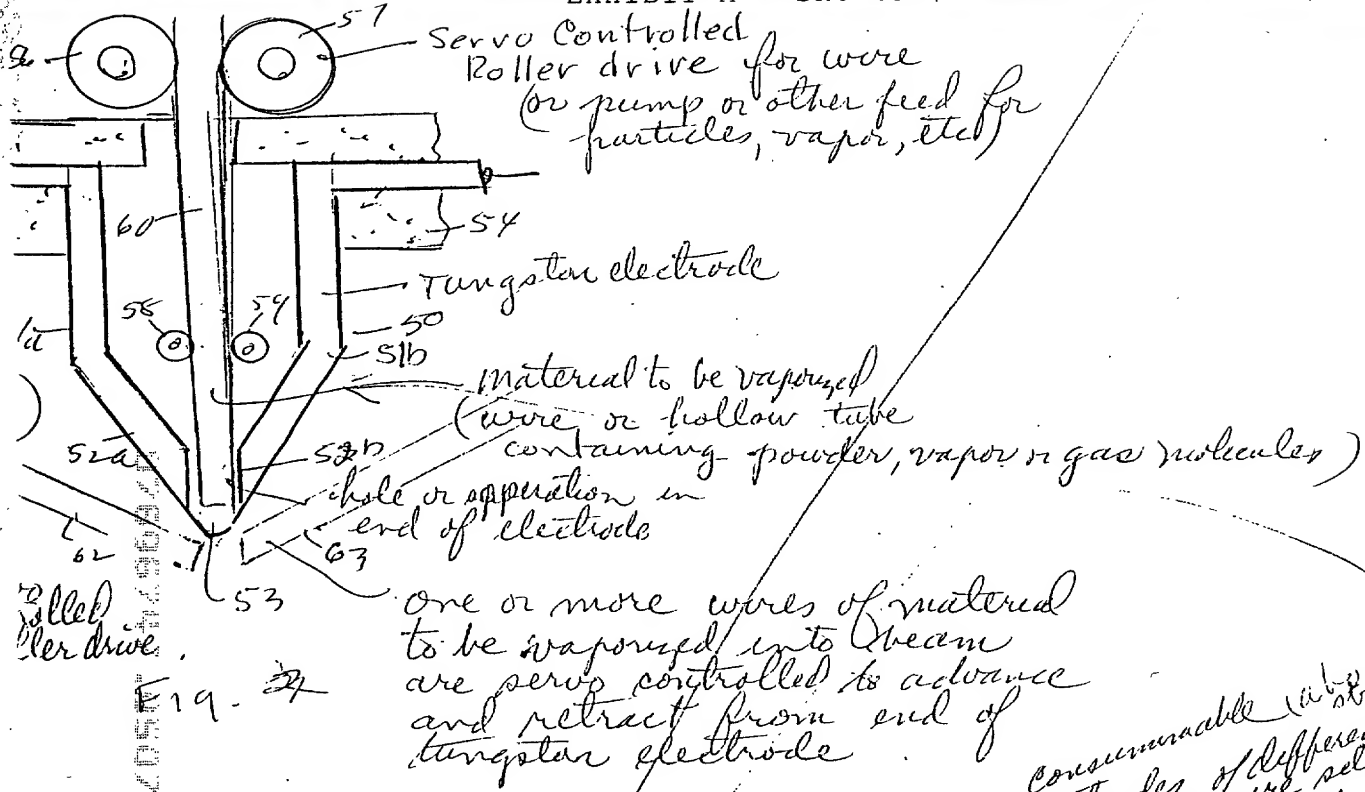 EXHIBIT A
57
Servo Controlled
Roller drive for wire
(or pump or other feed for
particles, vapor, etc)
60
54
Tungston electrode
58
59
50
51b
material to be vaporized
(wire or hollow tube
containing powder, vapor or gas molecules)
52a
52b
hole or apperation in
end of electrode
62
63
53
one or more wires of material
to be vaporized into beam
are servo controlled to advance
and retract from end of
tungston electrode
ler drive.
Fig.
of different